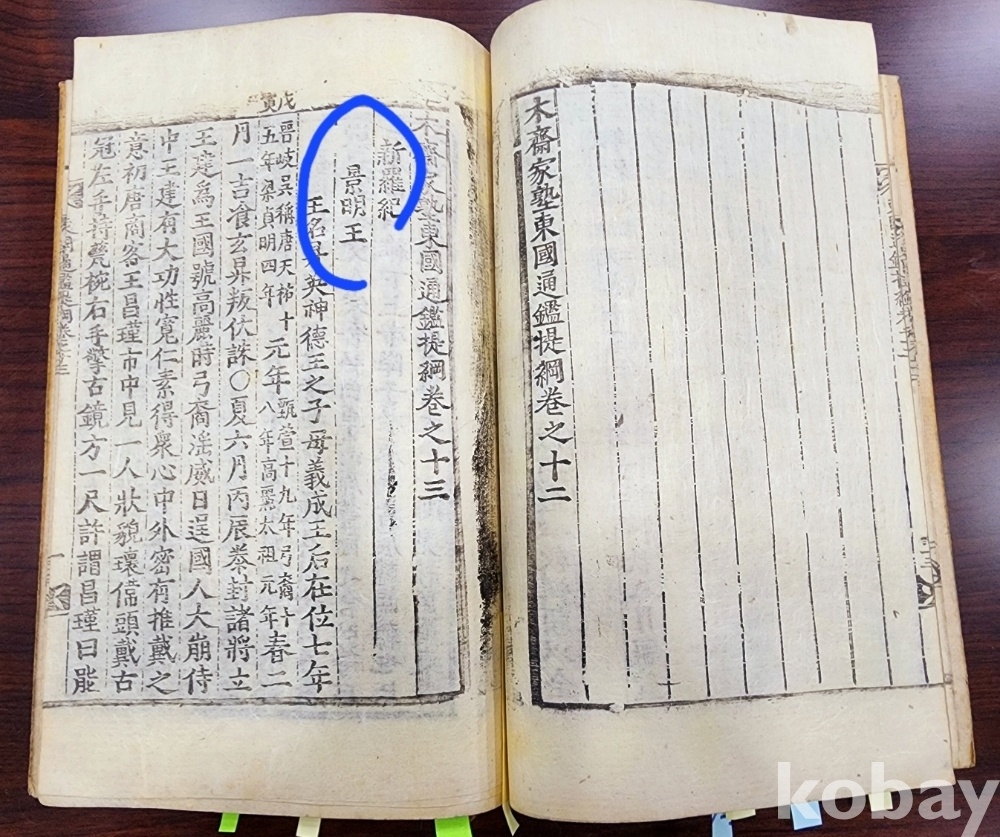 木齋家塾東國通鑑提綱卷之十二
木齋家塾東國通鑑提綱卷之十三
新羅紀
景明王
王名昇英神德王之子母義成王后在位七年
戊寅
晉岐吳稱唐天祐十五年梁貞明四年元年甄萱十九年弓裔十八年高麗太祖元年春二
月一吉飡玄昇叛伏誅○夏六月丙辰泰封諸將立
王建爲王國號高麗時弓裔淫威日逞國人大崩侍
中王建有大功性寬仁素得衆心中外密有推戴之
意初唐商客王昌瑾市中見一人狀貌瓌偉頭戴古
冠左手持甆椀右手擎古鏡方一尺許謂昌瑾曰能
kobay